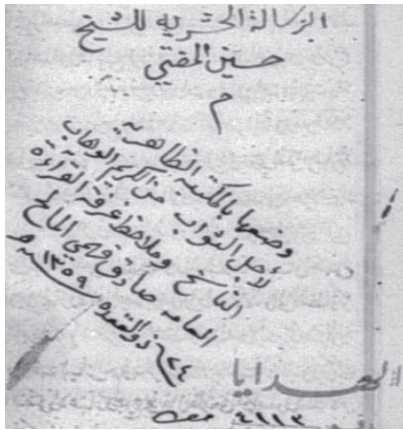 الرسالة الحشرية للشيخ
حسين المفتي
م
وضعها بالمكتبة الظاهرية
لأجل الثواب من الكريم الوهاب
الناسخ وملاحظ غرفة القراءة
العامه صادق فهمي المالح
٢٤ ذو القعدة سنة ١٣٥٩ هـ
الهدايا
٤١١٣